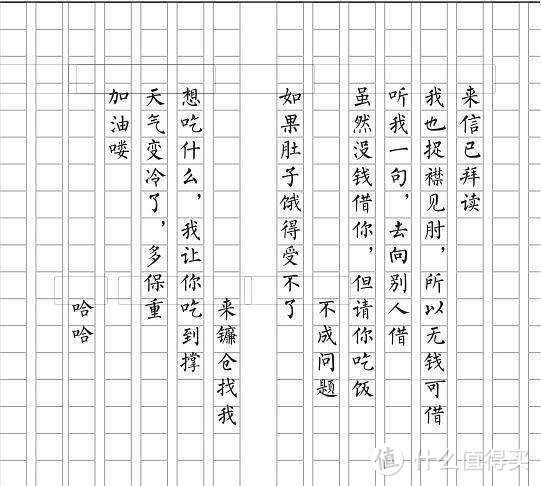 来信已拜读
我也捉襟见肘，所以无钱可借
听我一句，去向别人借
虽然没钱借你，但请你吃饭
不成问题
如果肚子饿得受不了
来镰仓找我
想吃什么，我让你吃到撑
天气变冷了，多保重
加油喽
哈哈
值 什么值得买